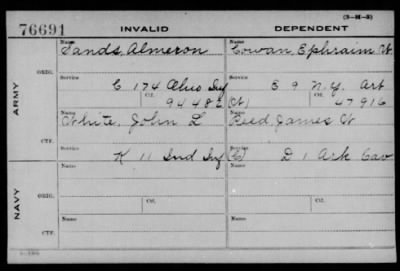 (3-H-3)
76691 INVALID DEPENDENT
Name Name
Sands, Almeron Cowan, Ephraim W.
ARMY
ORIG.
Service Service
C 174 Ohio Inf E 9 N.Y. Art
Ctf. Ctf.
94482 (W) 47916
Name Name
White, John L Reed, James W
CTF.
Service Service
K 11 Ind Inf (C) D 1 Ark Cav
NAVY
Name Name
ORIG.
Service Ctf. Service Ctf.
Name Name
CTF.
Service Service